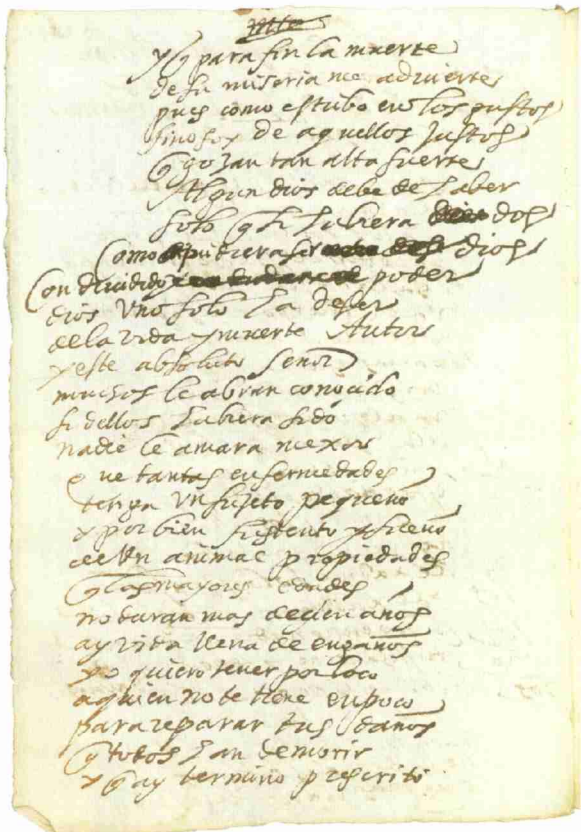 y q para fin la muerte
de su miseria me advierte
pues como estubo en los justos
sino fox de aquellos justos
q gozan tan alta suerte
Algun dios debe de haber
solo q si hubiera dos
Como pudiera ser dios
Con dividido poder
dios uno solo ha de ser
de la vida y muerte Autor
y este absoluto señor
muchos le abran conocido
si dellos hubiera sido
nadie le amara mexor
que tantas enfermedades
tenga un sujeto pequeño
y por bien sustento y sueño
de un animal propiedades
q las mayores edades
no duran mas de cien años
ay vida llena de engaños
yo quiero tener por loco
a quien no te tiene en poco
para reparar tus daños
q todos han de morir
y q ay termino prescrito